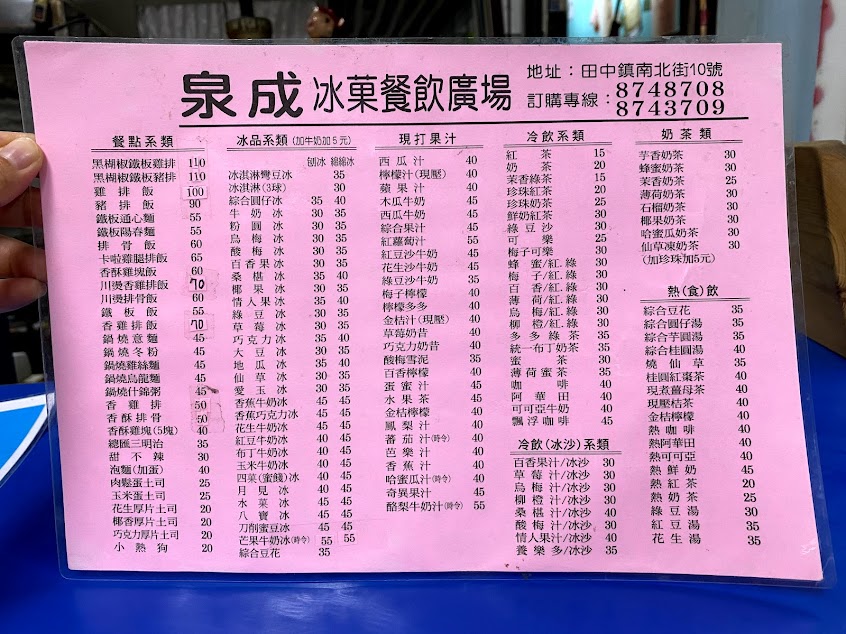 泉成冰菓餐飲廣場
地址：田中鎮南北街10號
訂購專線：8748708
8743709
餐點系類
黑胡椒鐵板雞排 110
黑胡椒鐵板豬排 110
雞排飯 100
豬排飯 90
鐵板通心麵 55
鐵板陽春麵 55
排骨飯 60
卡啦雞腿排飯 65
香酥雞塊飯 60
川燙香雞排飯 70
川燙排骨飯 60
鐵板飯 55
香雞排飯 70
鍋燒意麵 45
鍋燒冬粉 45
鍋燒雞絲麵 45
鍋燒烏龍麵 45
鍋燒什錦粥 45
香雞排 50
香酥排骨 50
香酥雞塊(5塊) 40
總匯三明治 35
甜不辣 30
泡麵(加蛋) 40
肉鬆蛋土司 25
玉米蛋土司 25
花生厚片土司 20
椰香厚片土司 20
巧克力厚片土司 20
小熱狗 20
冰品系類(加牛奶加5元)
刨冰 綿綿冰
冰淇淋彎豆冰 35
冰淇淋(3球) 30
綜合圓仔冰 35 40
牛奶冰 30 35
粉圓冰 30 35
烏梅冰 30 35
酸梅冰 30 35
百香果冰 30 35
桑椹冰 35 40
椰果冰 30 35
情人果冰 35 40
綠豆冰 30 35
草莓冰 30 35
巧克力冰 35 40
大豆冰 30 35
地瓜冰 35 40
仙草冰 30 35
愛玉冰 30 35
香蕉牛奶冰 40 45
香蕉巧克力冰 40 45
花生牛奶冰 40 45
紅豆牛奶冰 40 45
布丁牛奶冰 40 45
玉米牛奶冰 40 45
四菓(蜜餞)冰 40 45
月見冰 40 45
水菓冰 45 45
八寶冰 45 45
刀削蜜豆冰 45 45
芒果牛奶冰(時令) 55 55
綜合豆花 35
現打果汁
西瓜汁 40
檸檬汁(現壓) 40
蘋果汁 40
木瓜牛奶 45
西瓜牛奶 45
綜合果汁 45
紅蘿蔔汁 55
紅豆沙牛奶 40
花生沙牛奶 45
綠豆沙牛奶 35
梅子檸檬 40
檸檬多多 40
金桔汁(現壓) 40
草莓奶昔 40
巧克力奶昔 40
酸梅雪泥 35
百香檸檬 40
蛋蜜汁 40
水果茶 45
金桔檸檬 40
鳳梨汁 40
蕃茄汁(時令) 40
芭樂汁 40
香蕉汁 40
哈蜜瓜汁(時令) 40
奇異果汁 45
酪梨牛奶(時令) 55
冷飲系類
紅茶 15
奶茶 20
茉香綠茶 15
珍珠紅茶 20
珍珠奶茶 25
鮮奶紅茶 30
綠豆沙 30
可樂 25
梅子可樂 30
蜂蜜/紅.綠 30
梅子/紅.綠 30
百香/紅.綠 30
薄荷/紅.綠 30
烏梅/紅.綠 30
柳橙/紅.綠 30
多多綠茶 35
統一布丁奶茶 35
蜜茶 30
薄荷蜜茶 35
咖啡 40
阿華田 40
可可亞牛奶 40
飄浮咖啡 45
冷飲(冰沙)系類
百香果汁/冰沙 30
草莓汁/冰沙 30
烏梅汁/冰沙 30
柳橙汁/冰沙 30
桑椹汁/冰沙 40
酸梅汁/冰沙 30
情人果汁/冰沙 40
養樂多/冰沙 35
奶茶類
芋香奶茶 30
蜂蜜奶茶 30
茉香奶茶 25
薄荷奶茶 30
石榴奶茶 30
椰果奶茶 30
哈蜜瓜奶茶 30
仙草凍奶茶 30
(加珍珠加5元)
熱(食)飲
綜合豆花 35
綜合圓仔湯 35
綜合芋圓湯 35
綜合桂圓湯 40
燒仙草 35
桂圓紅棗茶 40
現煮薑母茶 40
現壓桔茶 40
金桔檸檬 40
熱咖啡 40
熱阿華田 40
熱可可亞 40
熱鮮奶 45
熱紅茶 20
熱奶茶 25
綠豆湯 30
紅豆湯 35
花生湯 35